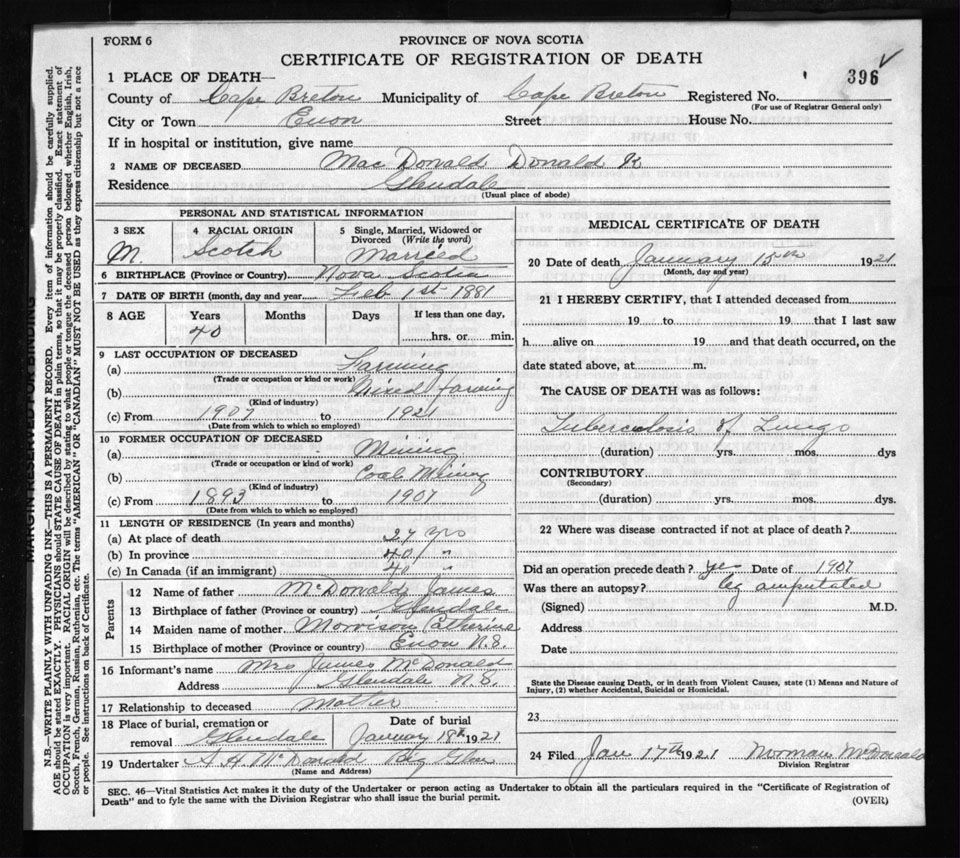 FORM 6
PROVINCE OF NOVA SCOTIA
CERTIFICATE OF REGISTRATION OF DEATH
396
1 PLACE OF DEATH—
County of Cape Breton Municipality of Cape Breton Registered No.
(For use of Registrar General only)
City or Town Enon Street House No.
If in hospital or institution, give name
2 NAME OF DECEASED Mac Donald Donald
Residence Glendale
(Usual place of abode)
PERSONAL AND STATISTICAL INFORMATION
3 SEX M.
4 RACIAL ORIGIN Scotch
5 Single, Married, Widowed or Divorced (Write the word) Married
6 BIRTHPLACE (Province or Country) Nova Scotia
7 DATE OF BIRTH (month, day and year) Feb 1st 1881
8 AGE Years Months Days If less than one day,
40 hrs. or min.
9 LAST OCCUPATION OF DECEASED
(a) Farming
(Trade or occupation or kind or work)
(b) Mixed farming
(Kind of industry)
(c) From 1907 to 1921
(Date from which to which so employed)
10 FORMER OCCUPATION OF DECEASED
(a) Mining
(Trade or occupation or kind of work)
(b) Coal Mining
(Kind of industry)
(c) From 1893 to 1907
(Date from which to which so employed)
11 LENGTH OF RESIDENCE (In years and months)
(a) At place of death 27 yrs
(b) In province 40 "
(c) In Canada (if an immigrant) 40 "
Parents
12 Name of father McDonald James
13 Birthplace of father (Province or country) Glendale
14 Maiden name of mother Morrison Catherine
15 Birthplace of mother (Province or country) Enon N.S.
16 Informant's name Mrs James McDonald
Address Glendale N.S.
17 Relationship to deceased Mother
18 Place of burial, cremation or removal Glendale
Date of burial January 18th 1921
19 Undertaker A. H. McDonald Big Glen
(Name and Address)
MEDICAL CERTIFICATE OF DEATH
20 Date of death January 15th 1921
(Month, day and year)
21 I HEREBY CERTIFY, that I attended deceased from
19 to 19 that I last saw
h alive on 19 and that death occurred, on the
date stated above, at m.
The CAUSE OF DEATH was as follows:
Tuberculosis of Lungs
(duration) yrs. mos. dys
CONTRIBUTORY
(Secondary)
(duration) yrs. mos. dys.
22 Where was disease contracted if not at place of death?
Did an operation precede death? yes Date of 1907
Was there an autopsy? leg amputated
(Signed) M.D.
Address
Date
State the Disease causing Death, or in death from Violent Causes, state (1) Means and Nature of Injury, (2) whether Accidental, Suicidal or Homicidal.
23
24 Filed Jan 17th 1921 Norman McDonald
Division Registrar
SEC. 46—Vital Statistics Act makes it the duty of the Undertaker or person acting as Undertaker to obtain all the particulars required in the "Certificate of Registration of
Death" and to fyle the same with the Division Registrar who shall issue the burial permit.
(OVER)
MARGIN RESERVED FOR BINDING
N.B.—WRITE PLAINLY WITH UNFADING INK—THIS IS A PERMANENT RECORD. Every item of information should be carefully supplied.
AGE should be stated EXACTLY. PHYSICIANS should STATE CAUSE OF DEATH in plain terms, so that it may be properly classified. Exact statement of
OCCUPATION is very important. RACIAL ORIGIN will be described by stating to what people or tongue the deceased person belonged whether English, Irish,
Scotch, French, German, Russian, Ruthenian, etc. The terms "AMERICAN" OR "CANADIAN" MUST NOT BE USED as they express citizenship but not a race
or people. See instructions on back of Certificate.